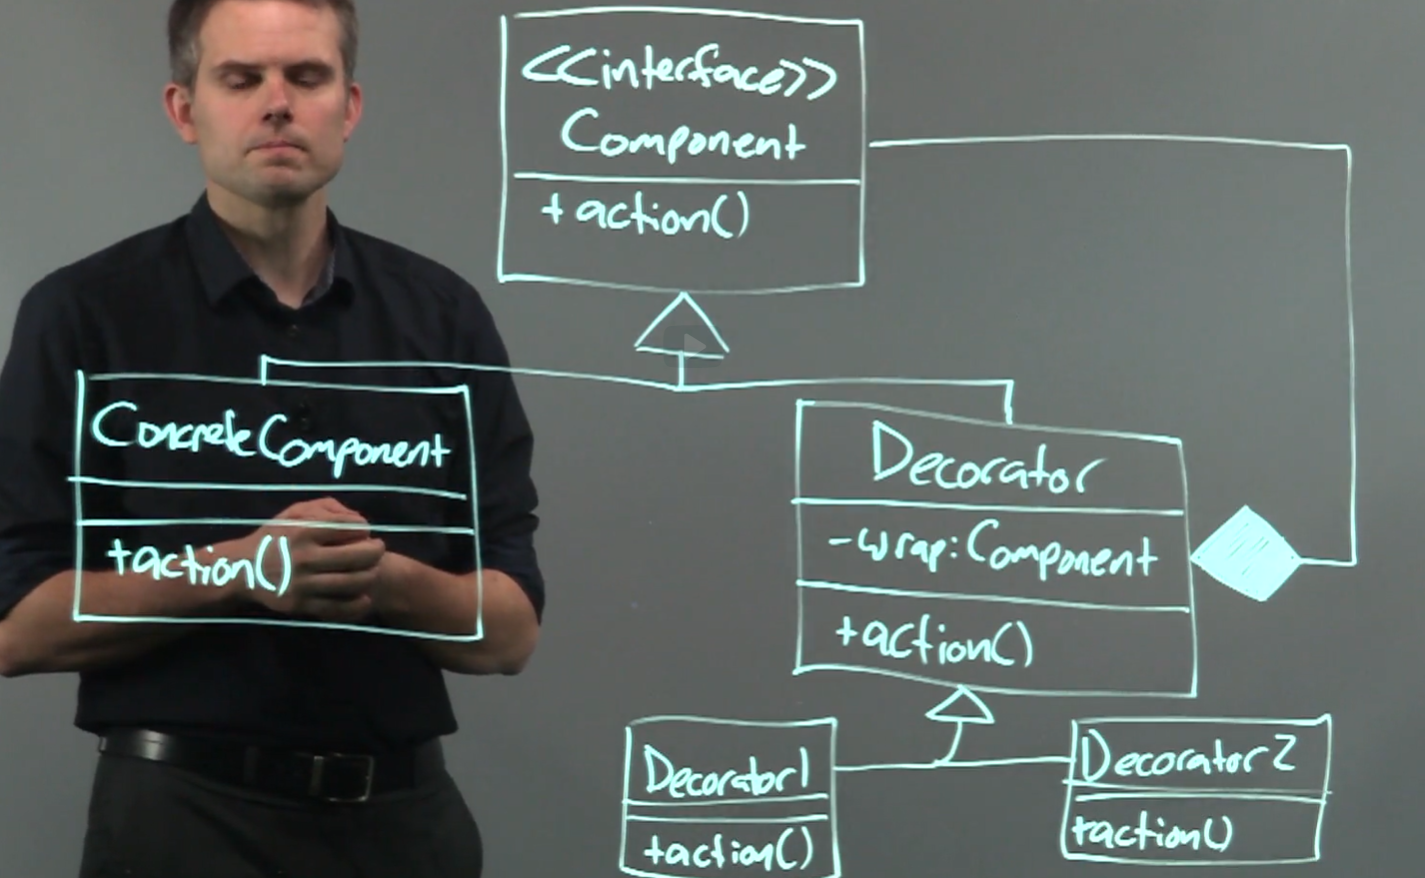 <<interface>>
Component
+ action()
ConcreteComponent
+action()
Decorator
-wrap:Component
+action()
Decorator1
+action()
Decorator2
+action()